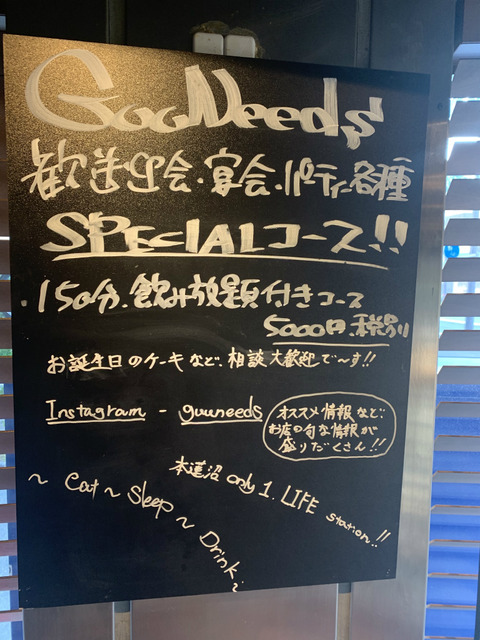 GuuNeeds
歓送迎会・宴会・パーティ各種
SPECIALコース!!
・150分、飲み放題付きコース
5000円、税別
お誕生日のケーキなど、相談大歓迎で〜す!!
Instagram - guuneeds
オススメ情報など、
お店の旬な情報が
盛りだくさん!!
本蓮沼 only 1. LIFE station..!!
〜 Eat 〜 Sleep 〜 Drink 〜